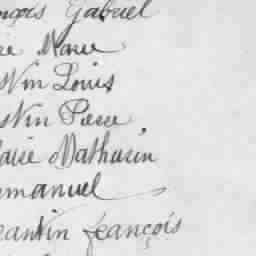 nçois Gabriel
rie Marie
stin Louis
stin Pierre
arie Mathurin
mmanuel
rantin françois